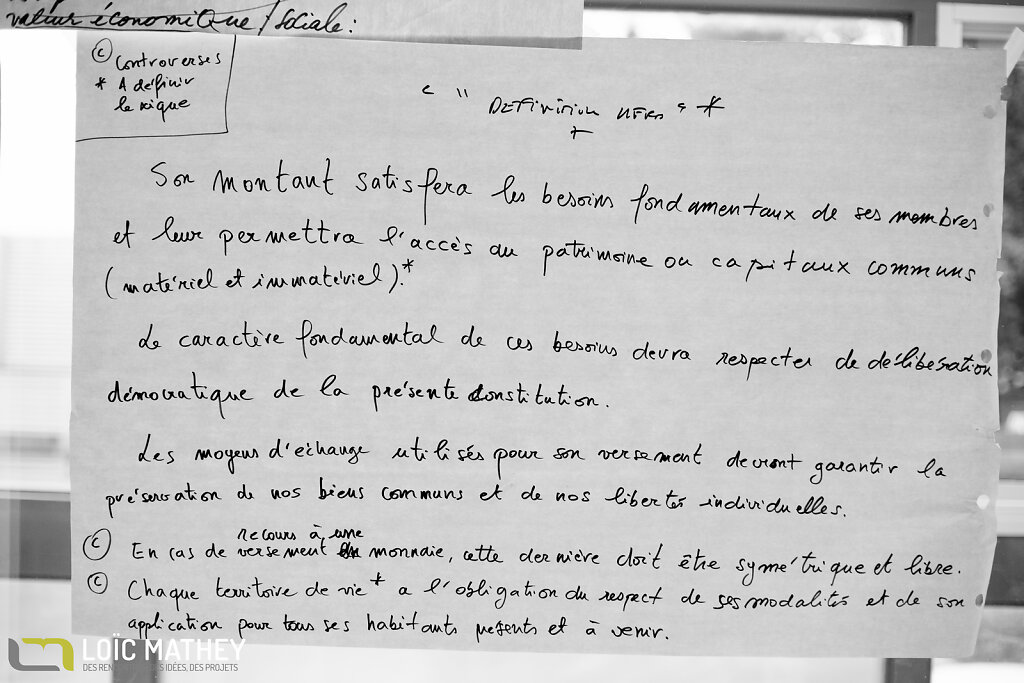 valeur économique/sociale:
© Controverses
* A définir
lexique
" DEFINITION MFRB " *
+
Son montant satisfera les besoins fondamentaux de ses membres
et leur permettra l'accès au patrimoine ou capitaux communs
(matériel et immatériel).*
Le caractère fondamental de ces besoins devra respecter de délibération
démocratique de la présente constitution.
Les moyens d'échange utilisés pour son versement devront garantir la
préservation de nos biens communs et de nos libertés individuelles.
recours à une
© En cas de versement en monnaie, cette dernière doit être symétrique et libre.
© Chaque territoire de vie* a l'obligation du respect de ses modalités et de son
application pour tous ses habitants présents et à venir.
LOÏC MATHEY
DES REN DES IDÉES, DES PROJETS